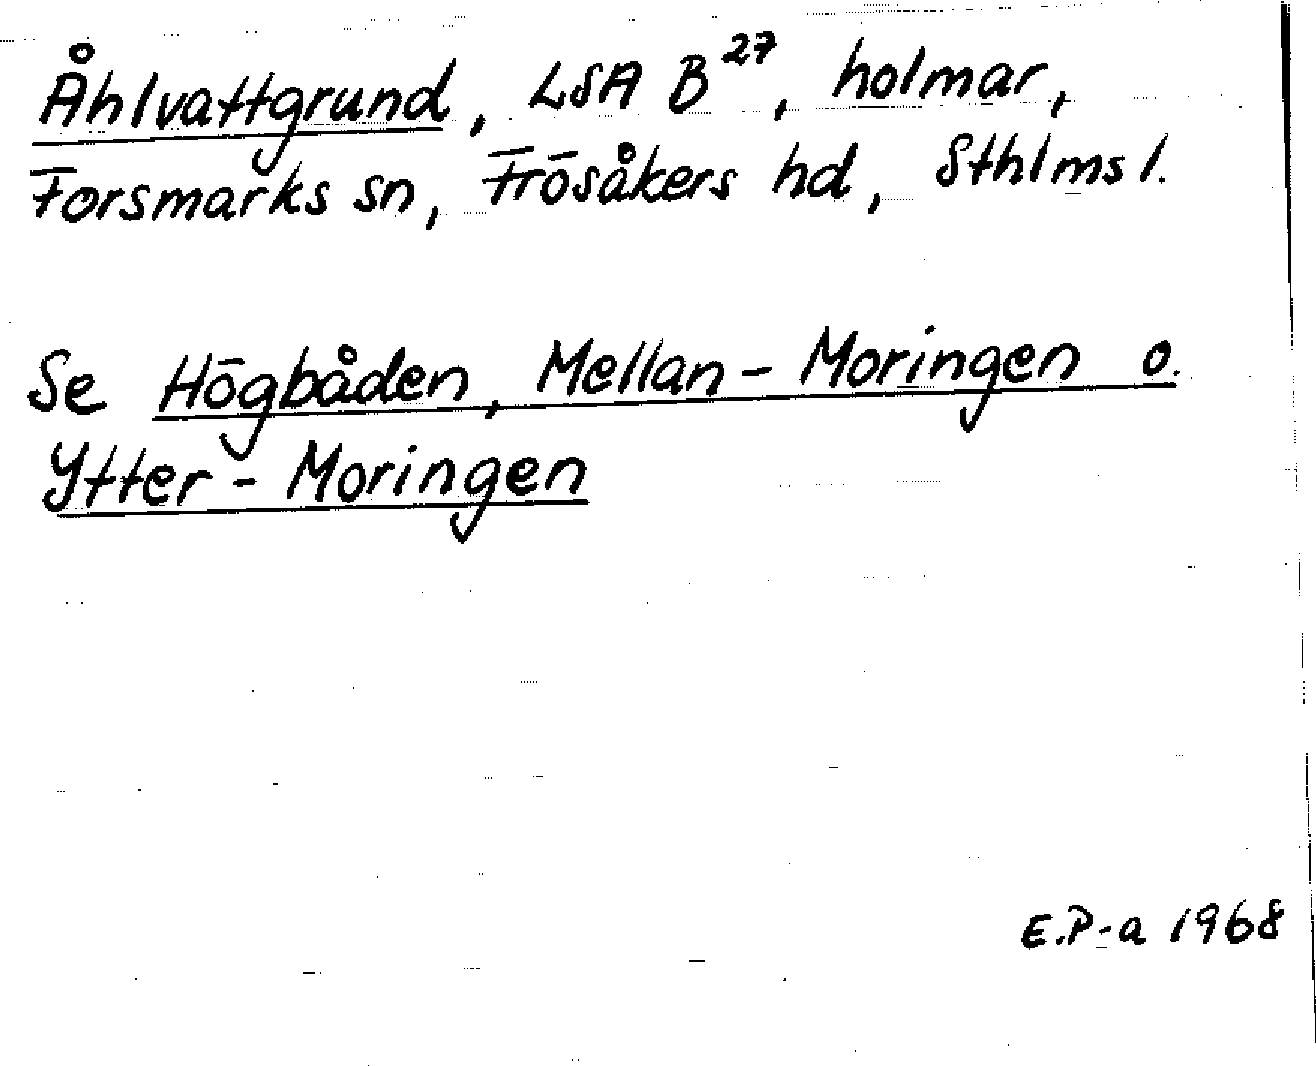 Åhlvattgrund, LSA B27, holmar,
Forsmarks sn, Frösåkers hd, Sthlms l.
Se Högbåden, Mellan-Moringen o.
Ytter-Moringen
E.P-a 1968